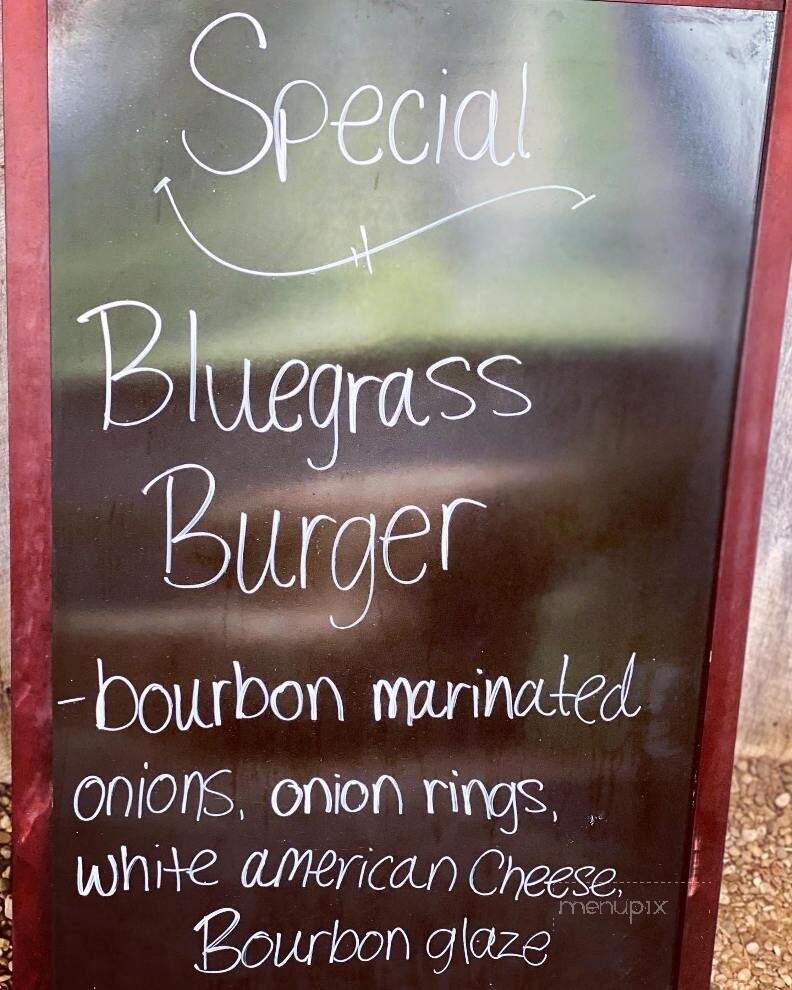 Special
Bluegrass
Burger
-bourbon marinated
onions, onion rings,
white american Cheese,
menupix
Bourbon glaze